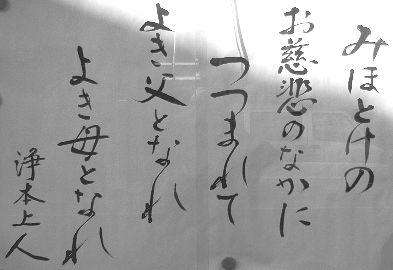 みほとけの
お慈悲のなかに
つつまれて
よき父となれ
よき母となれ
浄本上人